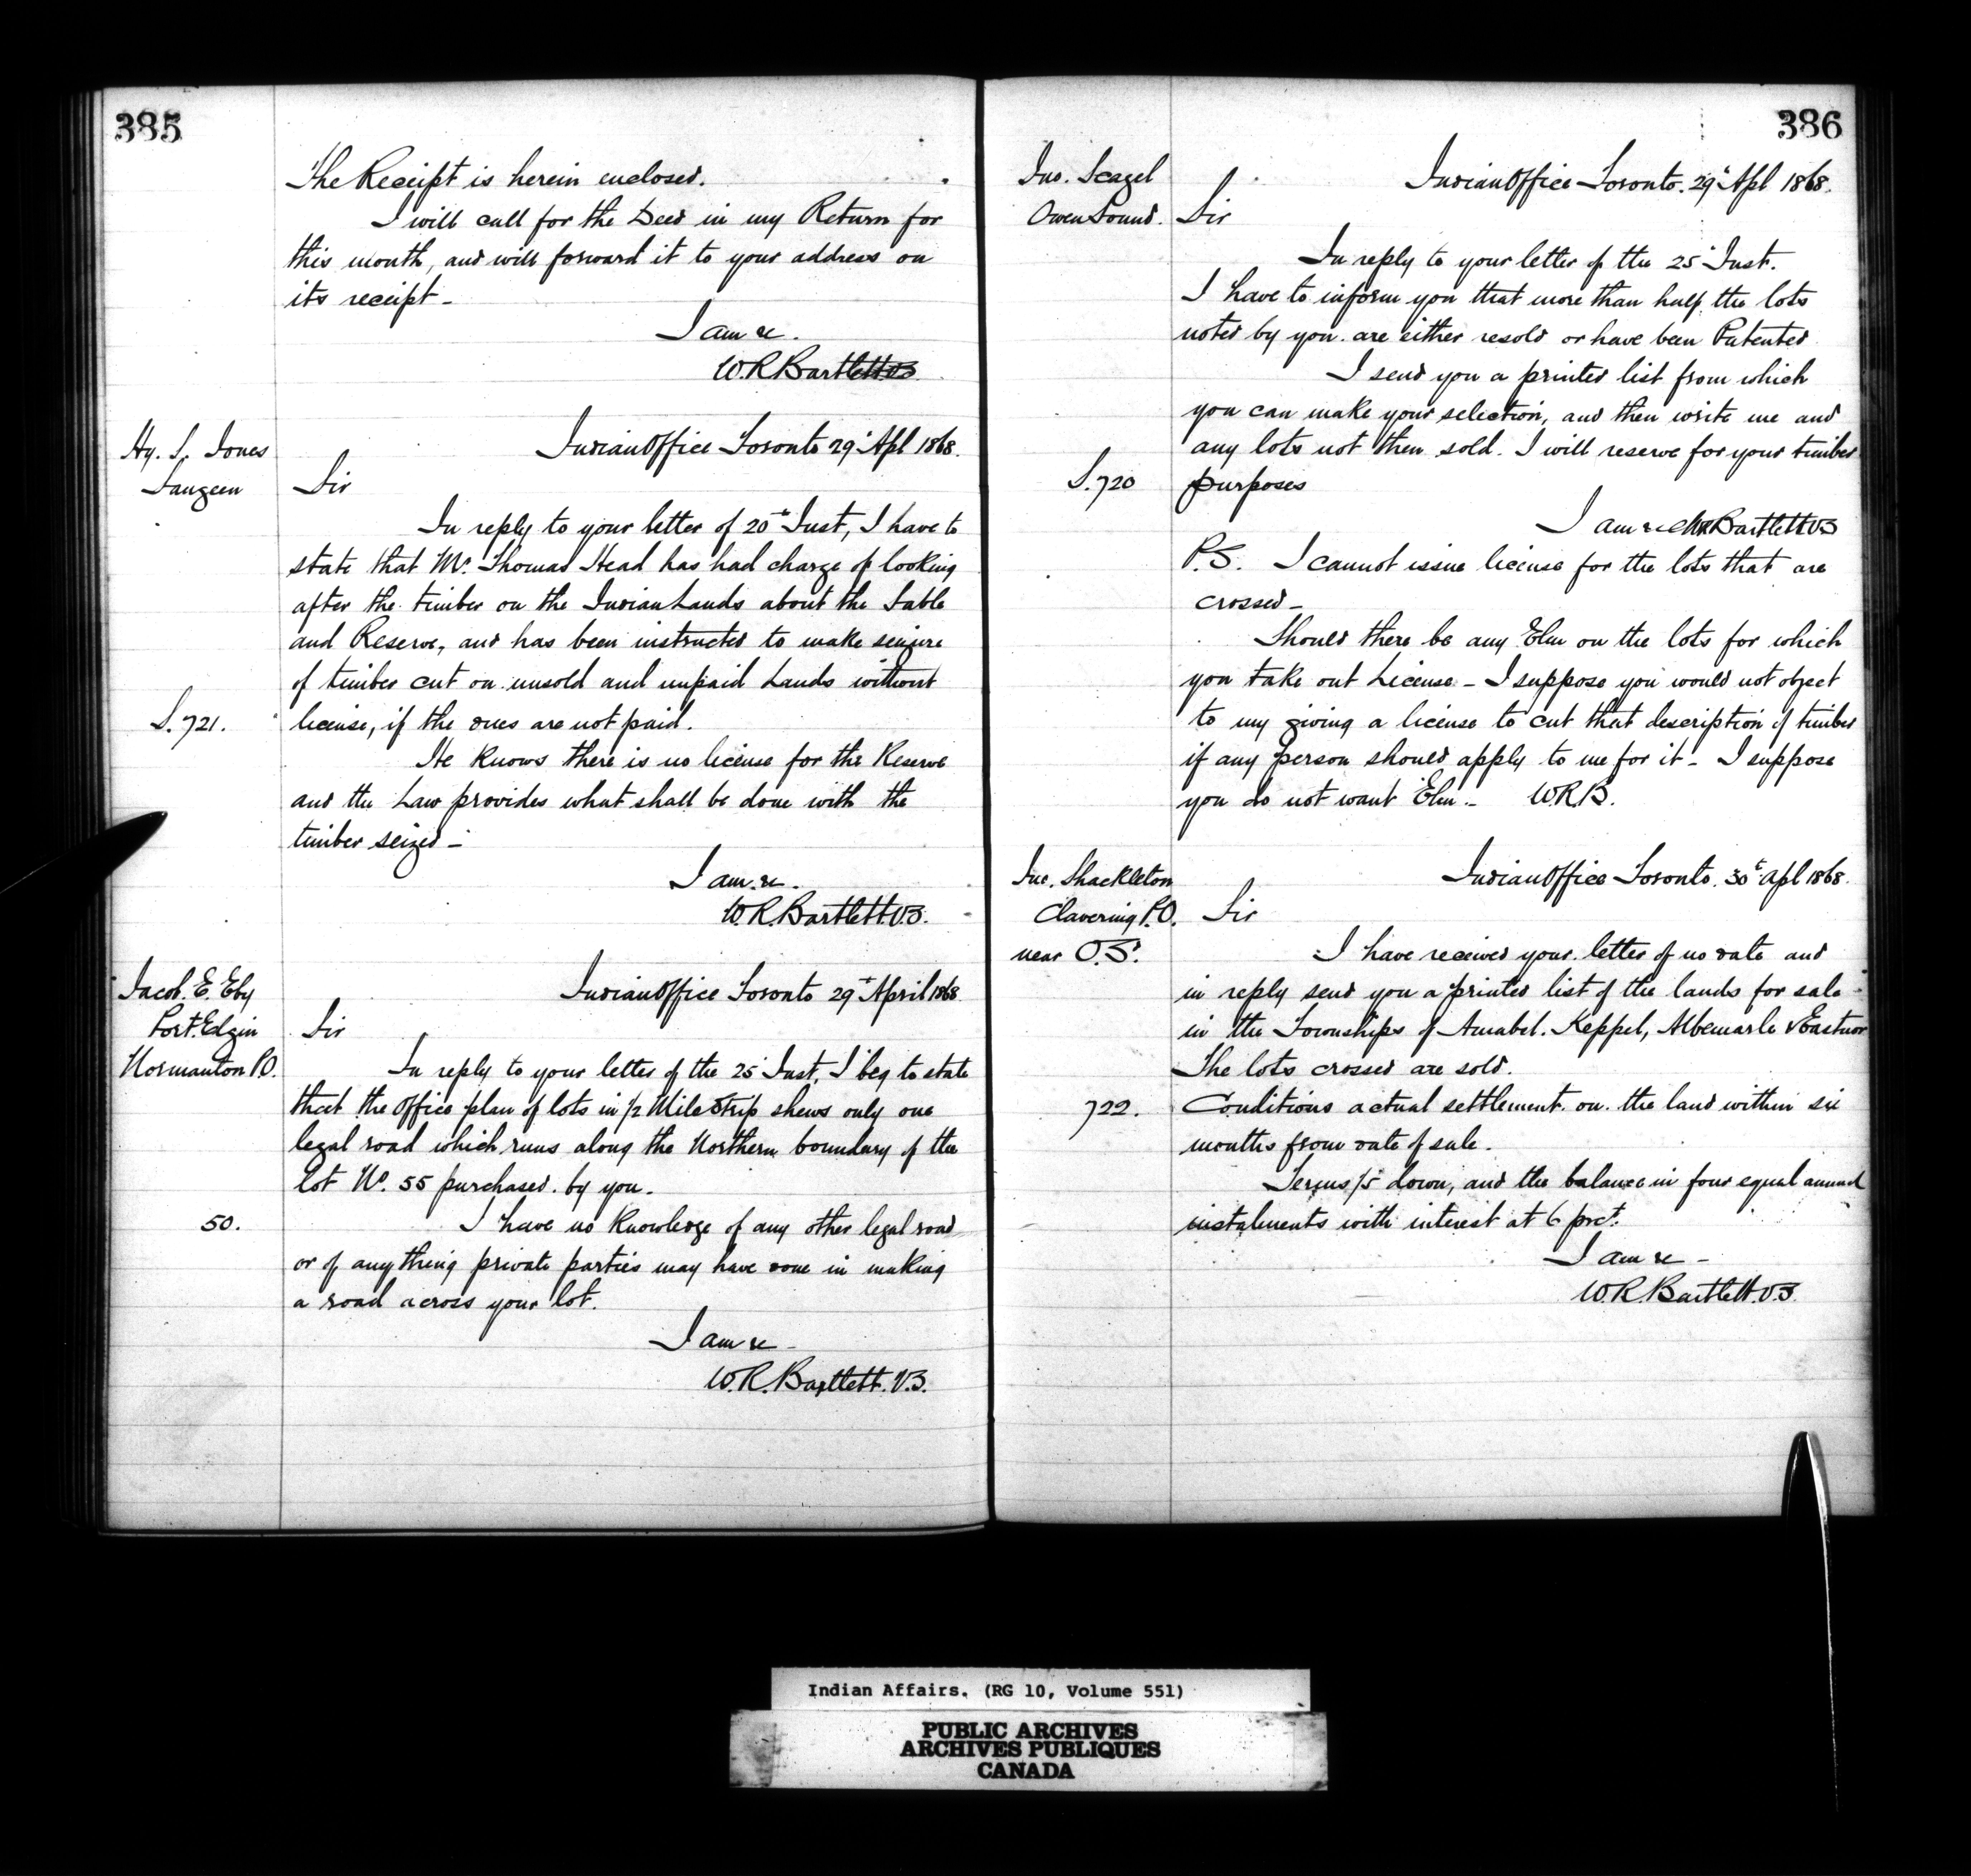 385
The Receipt is herein enclosed.
I will call for the Deed in my Return for
this month, and will forward it to your address on
its receipt -
I am &c.
W.R. Bartlett V.S.
Hy. S. Jones
Saugeen
Indian Office Toronto 29 Apl 1868.
Sir
In reply to your letter of 20th Inst, I have to
state that Mr. Thomas Head has had charge of looking
after the timber on the Indian Lands about the Sable
and Reserve, and has been instructed to make seizure
of timber cut on unsold and unpaid Lands without
S. 721.
license, if the dues are not paid.
He knows there is no license for the Reserve
and the Law provides what shall be done with the
timber seized -
I am &c.
W.R. Bartlett. V.S.
Jacob. E. Eby
Port. Elgin
Normanton P.O.
Indian Office Toronto 29th April 1868
Sir
In reply to your letter of the 25 Inst, I beg to state
that the office plan of lots in 1/2 Mile Strip shews only one
legal road which runs along the Northern boundary of the
lot No. 55 purchased by you.
50.
I have no knowledge of any other legal road
or of anything private parties may have done in making
a road across your lot.
I am &c -
W.R. Bartlett. V.S.
386
Jno. Scagel
Owen Sound.
Indian Office Toronto. 29th Apl 1868.
Sir
In reply to your letter of the 25 Inst.
I have to inform you that more than half the lots
noted by you are either resold or have been Patented
I send you a printed list from which
you can make your selection, and then write me and
any lots not then sold. I will reserve for your timber
S. 720
purposes
I am &c W.R. Bartlett V.S
P.S. I cannot issue license for the lots that are
crossed -
Should there be any Elm on the lots for which
you take out License - I suppose you would not object
to my giving a license to cut that description of timber
if any person should apply to me for it - I suppose
you do not want Elm. - W.R.B.
Jno. Shackleton
Clavering P.O.
near O.S.
Indian Office Toronto. 30t Apl 1868.
Sir
I have received your letter of no date and
in reply send you a printed list of the lands for sale
in the Townships of Amabel. Keppel, Albemarle & Eastnor
The lots crossed are sold.
722.
Conditions actual settlement on the land within six
months from date of sale.
Terms 1/5 down, and the balance in four equal annual
instalments with interest at 6 prct.
I am &c -
W.R. Bartlett. V.S.
Indian Affairs. (RG 10, Volume 551)
PUBLIC ARCHIVES
ARCHIVES PUBLIQUES
CANADA